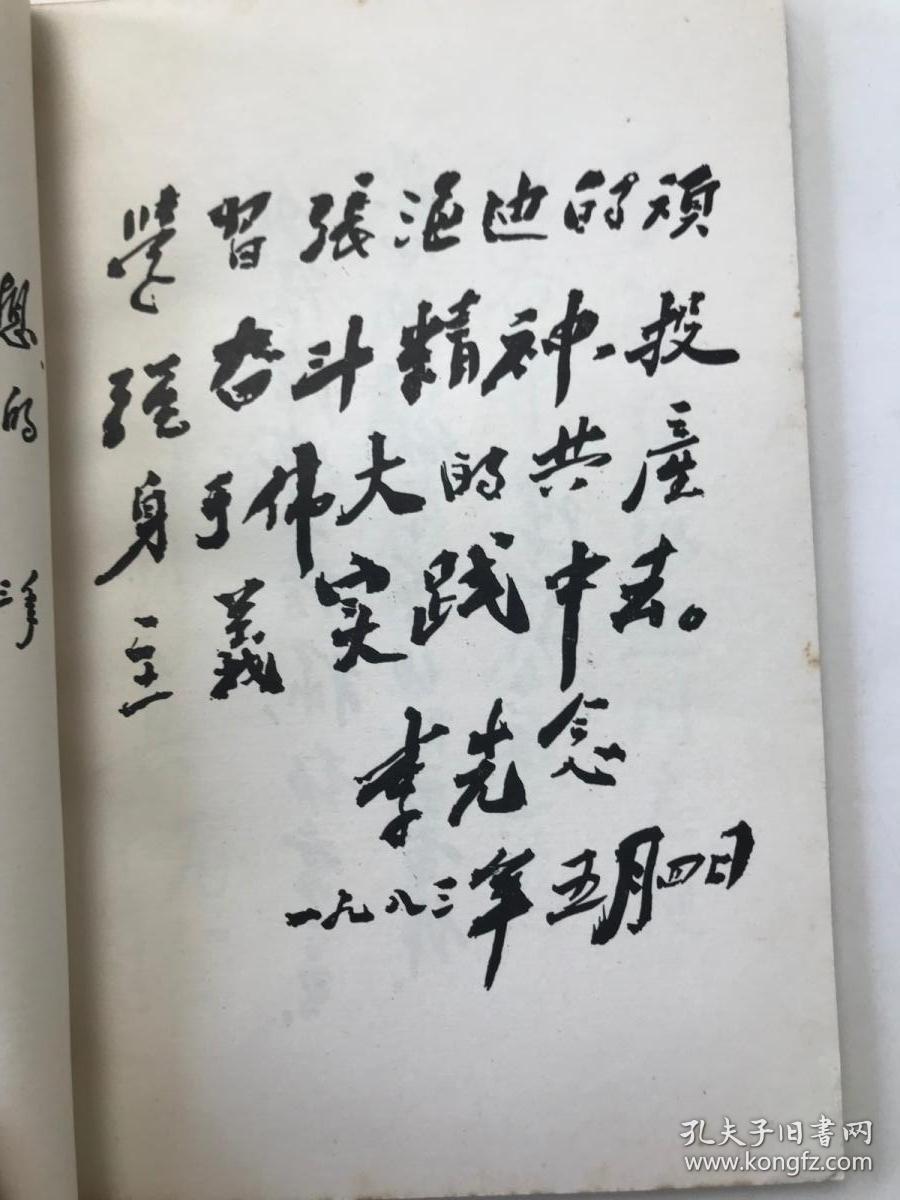 想、
的
三年
學習張海迪的頑
强奋斗精神、投
身于伟大的共產
主義实践中去。
李先念
一九八三年五月四日
孔夫子旧書网
www.kongfz.com